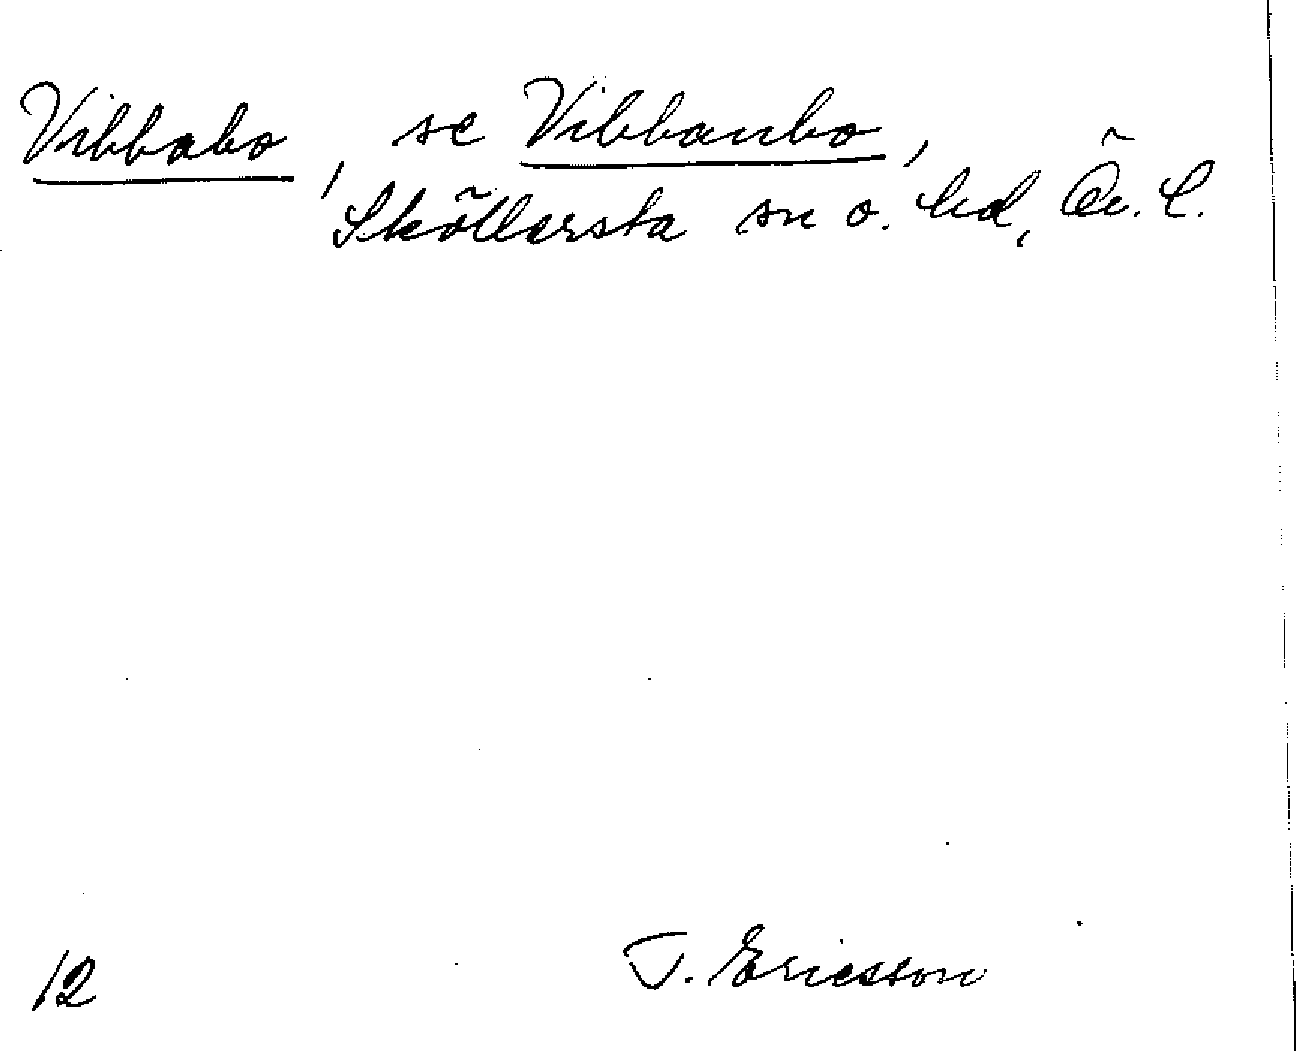 Vibbabo, se Vibbanbo,
Sköllersta sn o. hd, Ör. l.
12 T. Ericsson